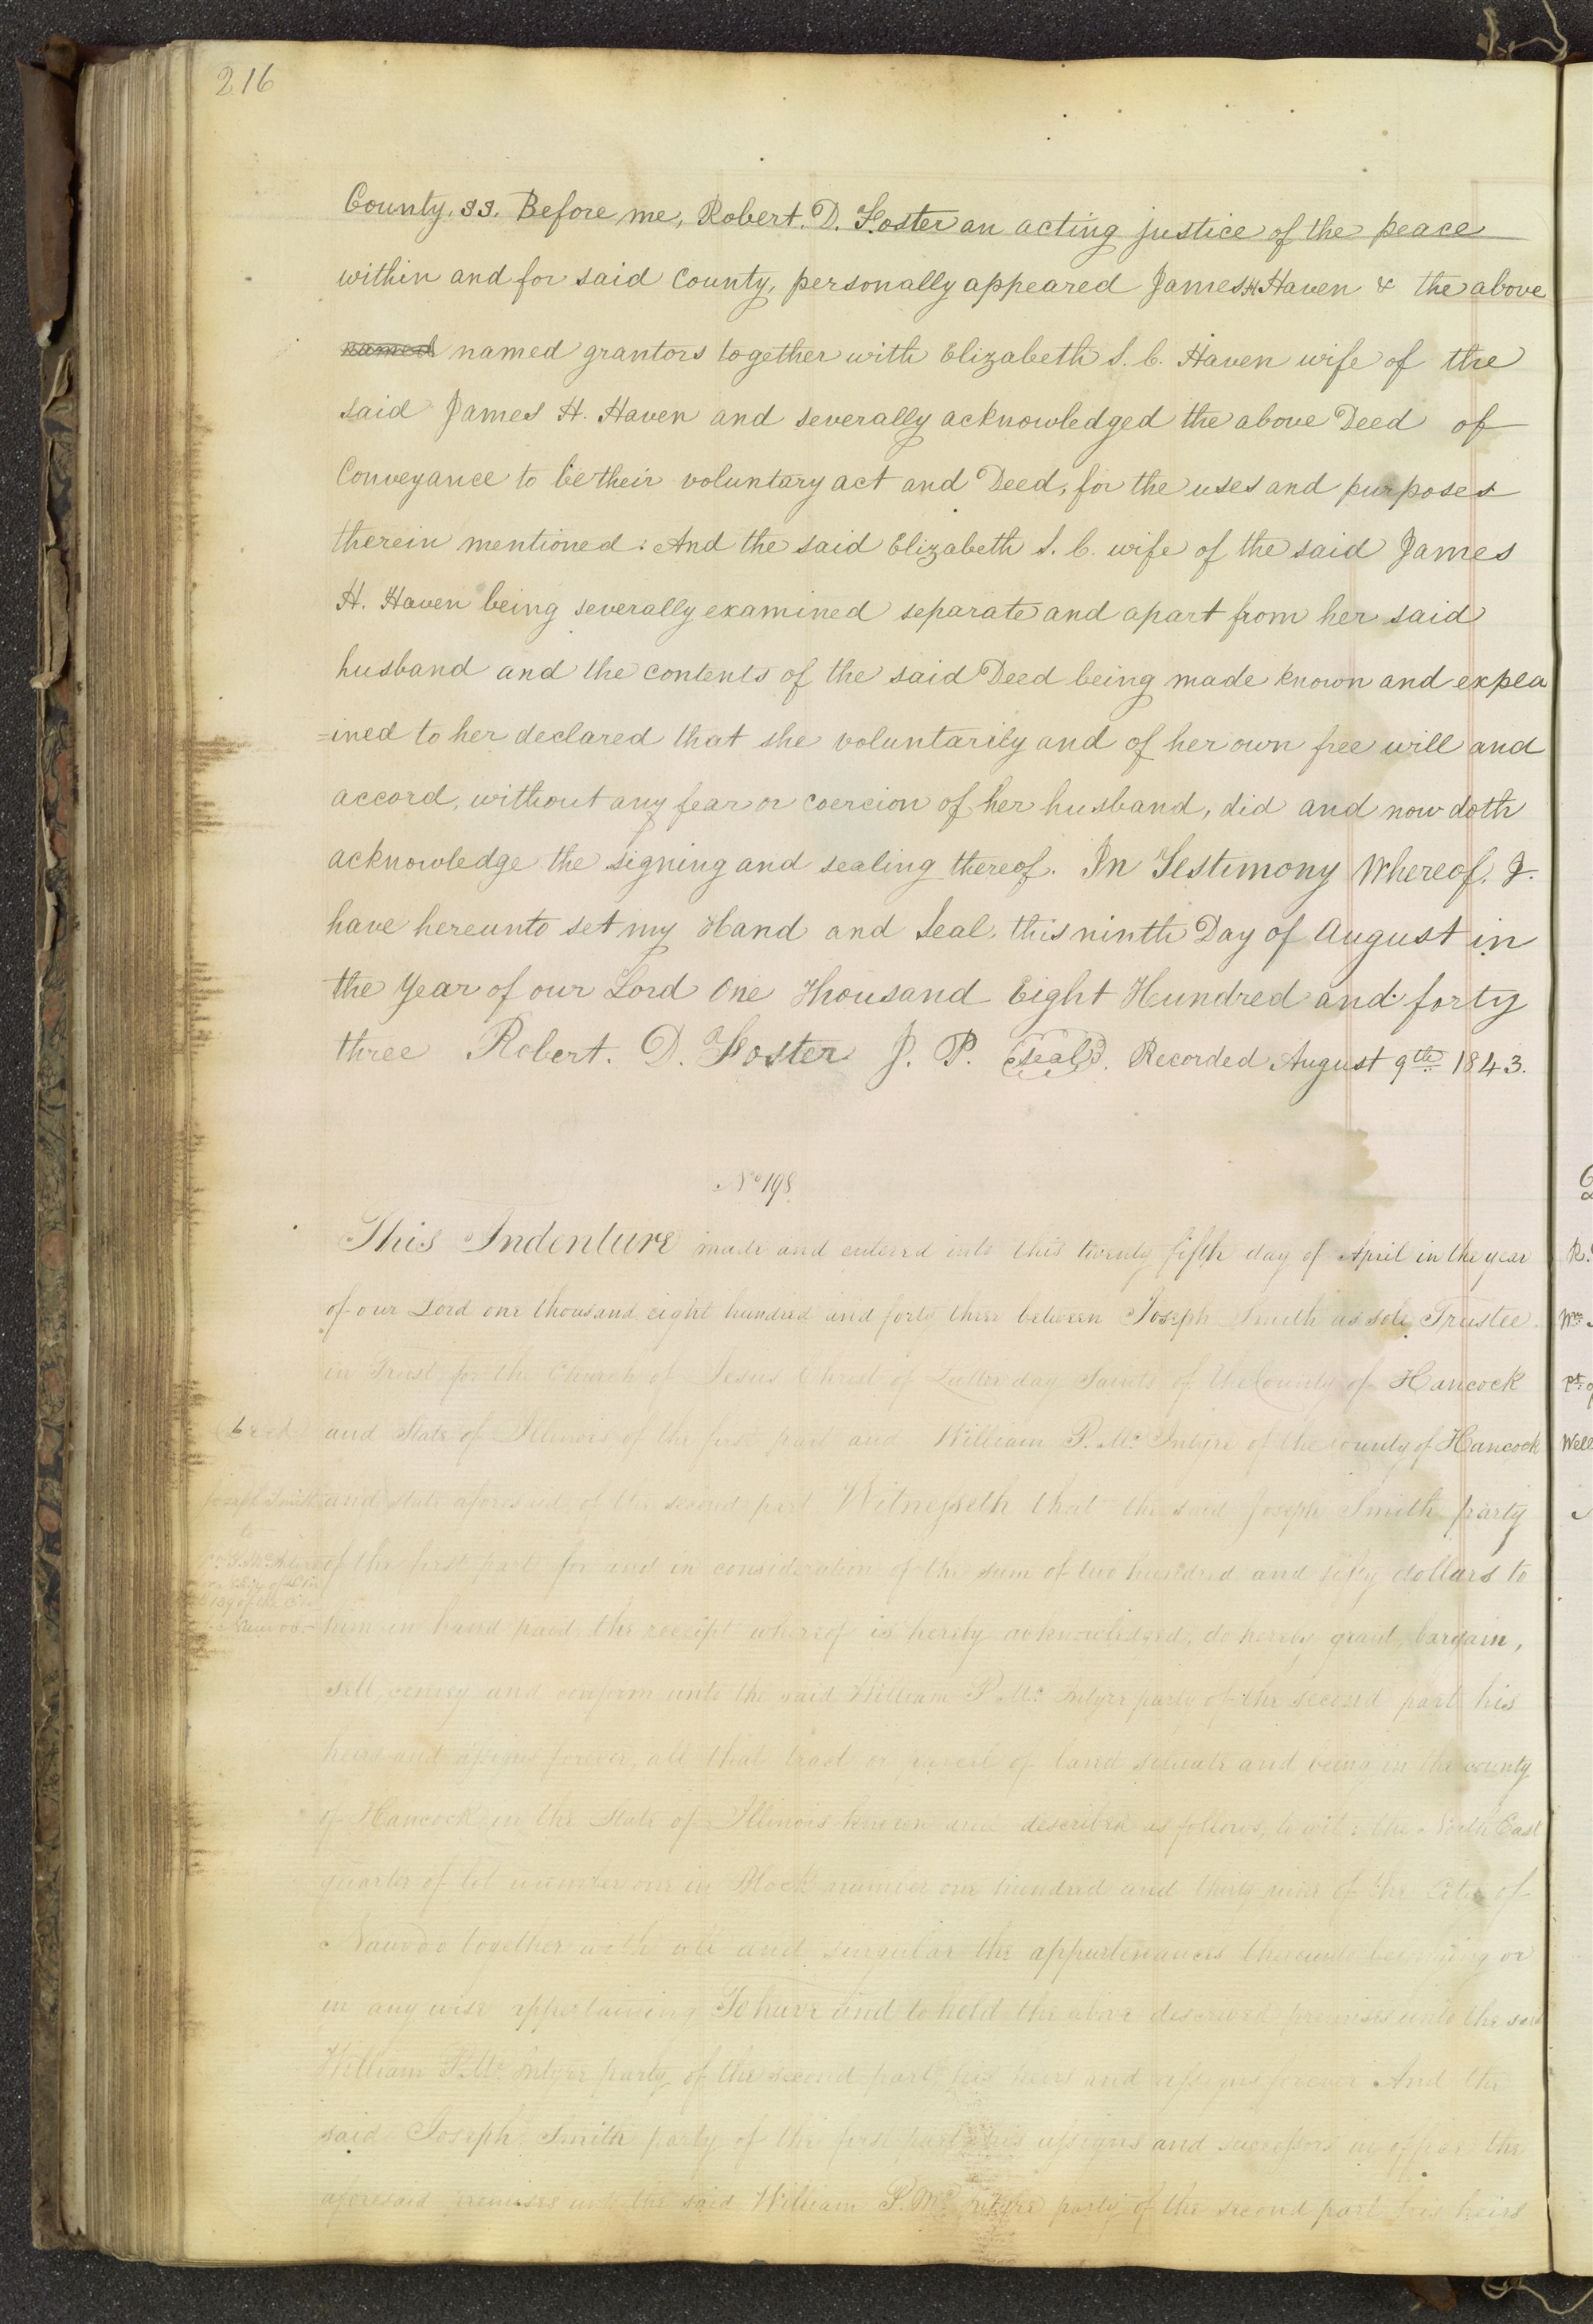 216
County. ss. Before me, Robert. D. Foster an acting justice of the peace
within and for said County, personally appeared James H Haven & the above
named named grantors together with Elizabeth S. C. Haven wife of the
said James H. Haven and severally acknowledged the above Deed of
Conveyance to be their voluntary act and Deed, for the uses and purposes
therein mentioned: And the said Elizabeth S. C. wife of the said James
H. Haven being severally examined separate and apart from her said
husband and the contents of the said Deed being made known and expla
=ined to her declared that she voluntarily and of her own free will and
accord, without any fear or coercion of her husband, did and now doth
acknowledge the signing and sealing thereof. In Testimony Whereof. I.
have hereunto set my Hand and Seal, this ninth Day of August in
the Year of our Lord One Thousand Eight Hundred and forty
three Robert. D. Foster J. P. Seal. Recorded August 9th 1843.
No 198
This Indenture made and entered into this twenty fifth day of April in the year
of our Lord one thousand eight hundred and forty three between Joseph Smith as sole Trustee
in Trust for the Church of Jesus Christ of Latter day Saints of the County of Hancock
and State of Illinois of the first part and William P. Mc Intyre of the county of Hancock
Joseph Smith
to
and state aforesaid of the second part Witnesseth that the said Joseph Smith party
of the first part for and in consideration of the sum of two hundred and fifty dollars to
Nauvoo.
him in hand paid the receipt whereof is hereby acknowledged, do hereby grant, bargain,
sell, convey and confirm unto the said William P. Mc Intyre party of the second part his
heirs and assigns forever, all that tract or parcel of land situate and being in the county
of Hancock in the State of Illinois known and described as follows, to wit: the North East
quarter of lot number one in Block number one hundred and thirty nine of the City of
Nauvoo together with all and singular the appurtenances thereunto belonging or
in any wise appertaining To have and to hold the above described premises unto the said
William P. Mc Intyre party of the second part his heirs and assigns forever And the
said Joseph Smith party of the first part his assigns and successors in office the
aforesaid premises unto the said William P. Mc Intyre party of the second part his heirs